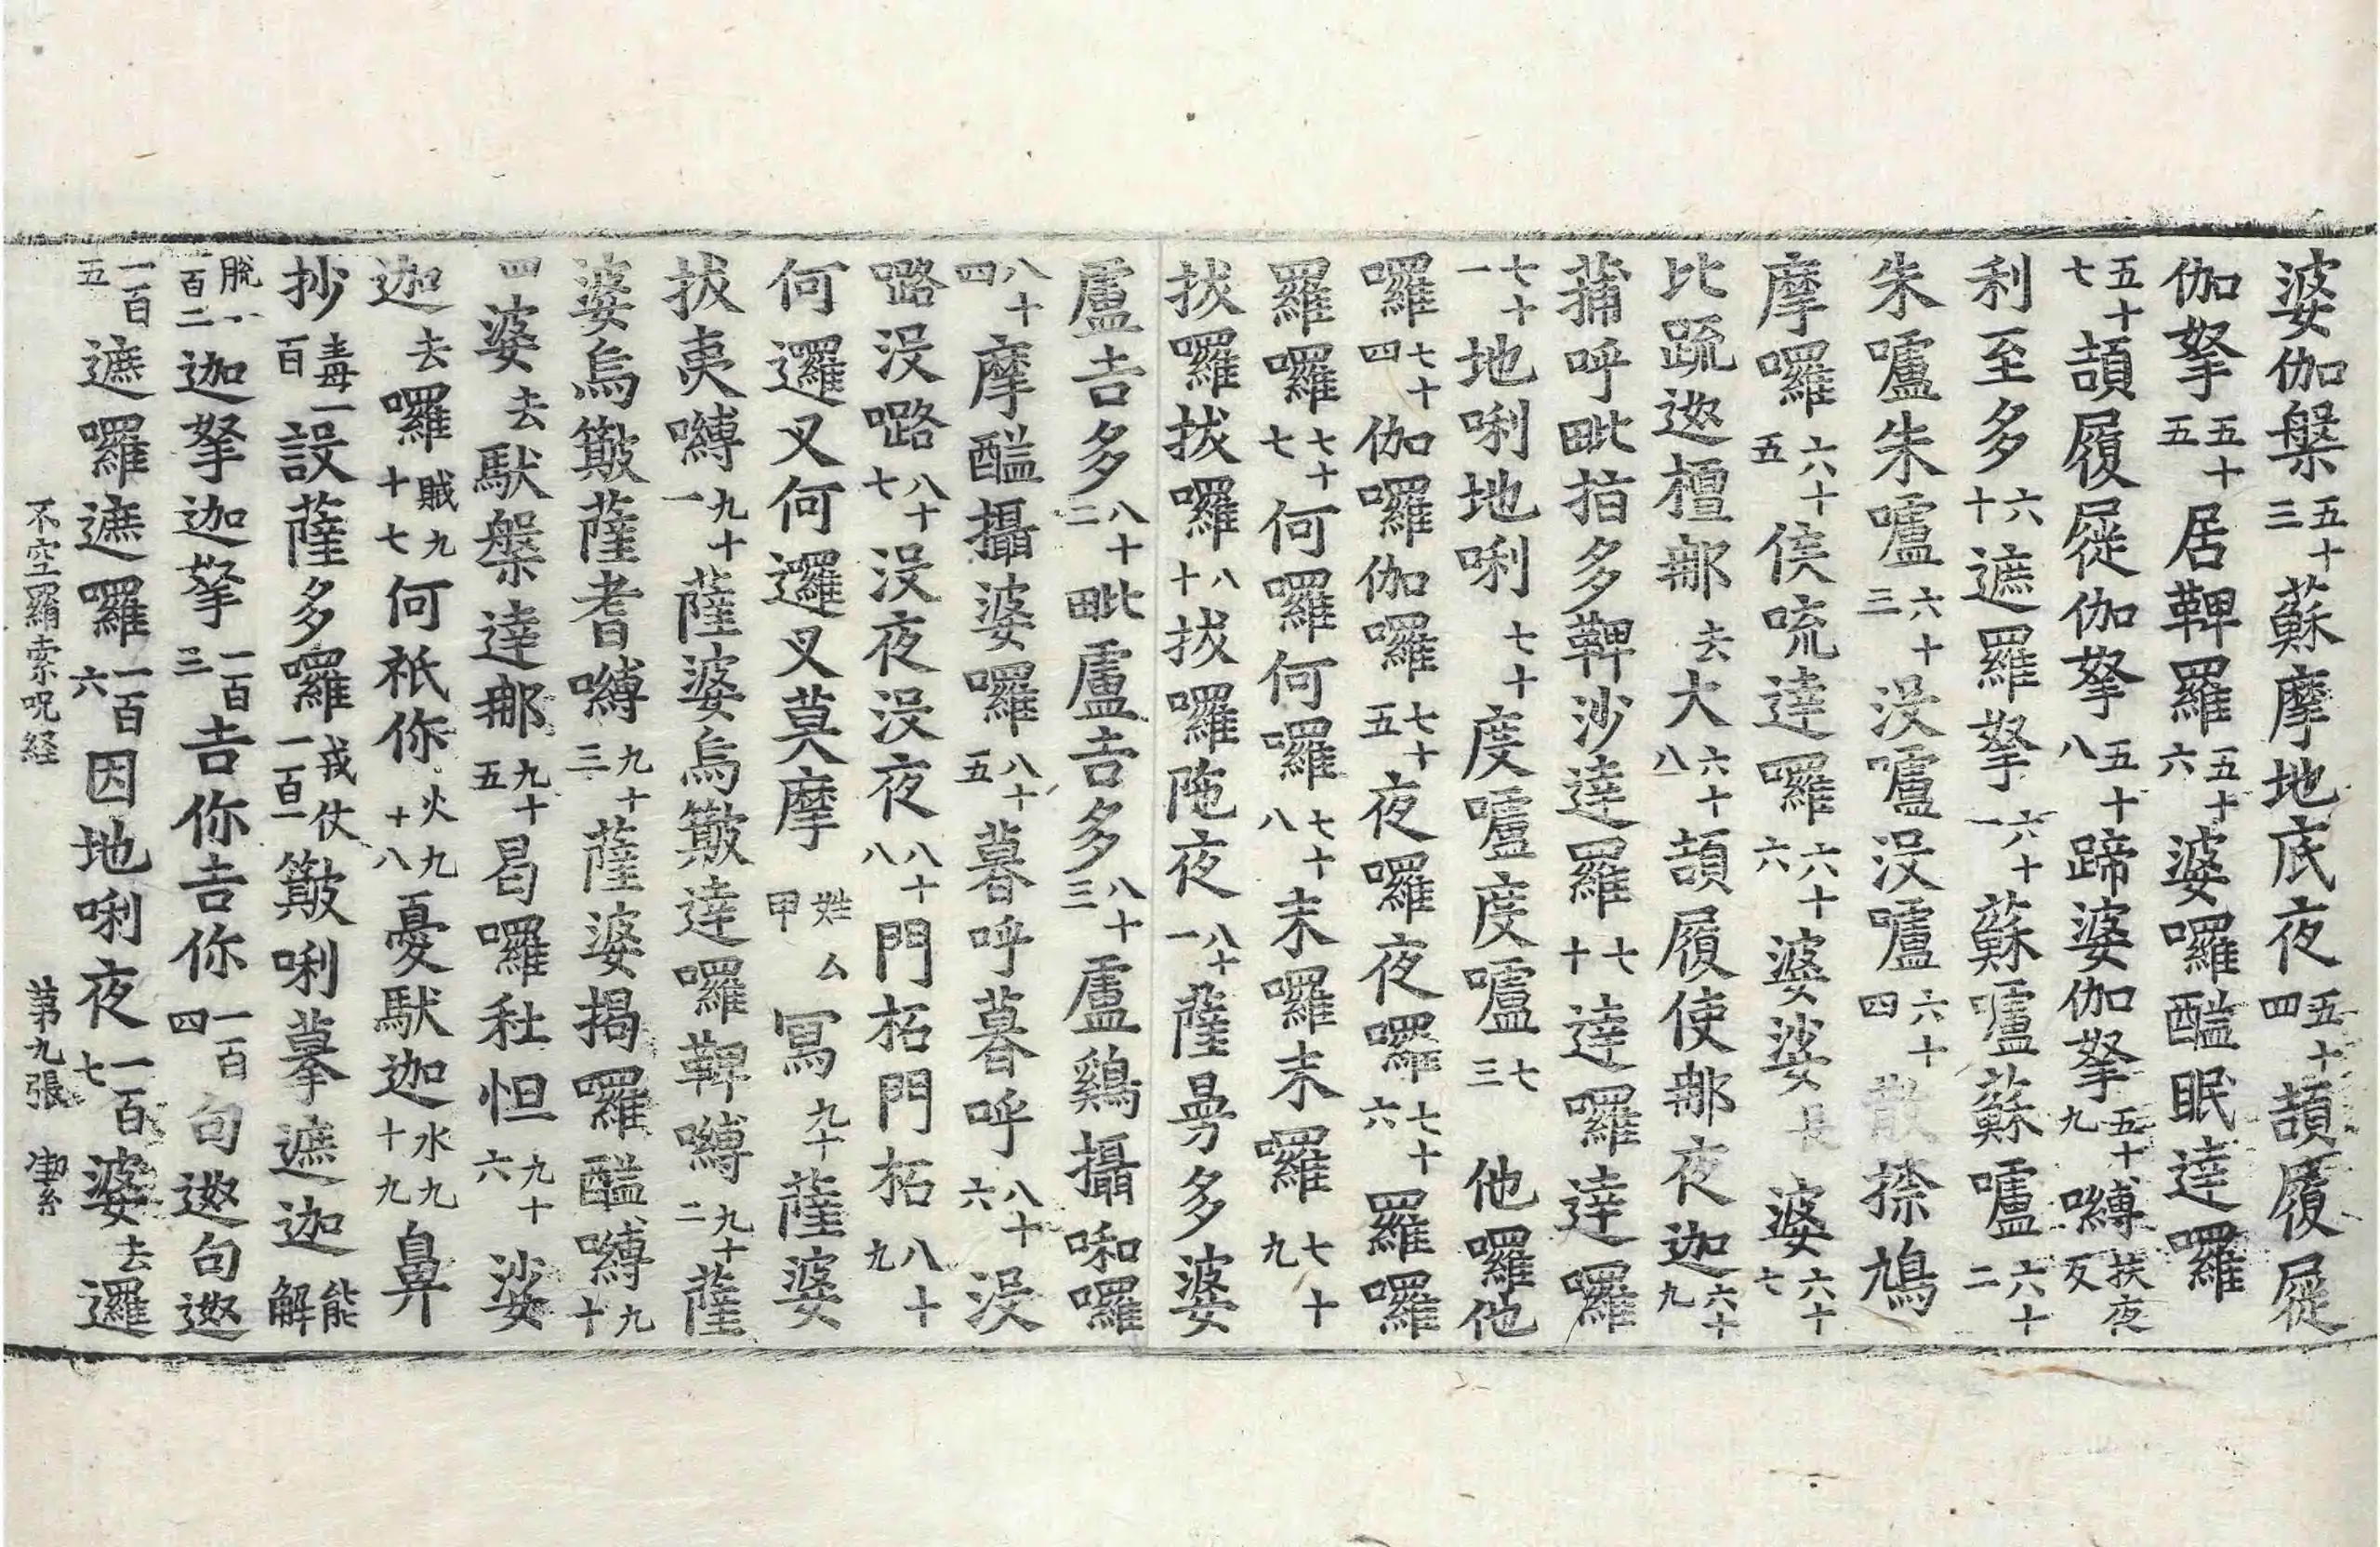 婆伽槃五十三蘇摩地底夜五十四頡履屣
伽拏五十五居鞞羅五十六婆囉醯眠達羅
五十七頡履屣伽拏五十八蹄婆伽拏五十九嚩扶夜反
利至多六十遮羅拏六十一蘇嚧蘇嚧六十二
朱嚧朱嚧六十三没嚧没嚧六十四散捺鳩
摩囉六十五侯㖟達囉六十六婆娑長婆六十七
比䟽迦檀那去大六十八頡履使那夜迦六十九
蒲呼毗指多鞞沙達羅七十達囉達囉
七十一地唎地唎七十度嚧度嚧七三他囉他
囉七十四伽囉伽囉七十五夜囉夜囉七十六羅囉
羅囉七十七何囉何囉七十八末囉末囉七十九
拔囉拔囉八十拔囉陁夜八十一薩曼多婆
盧吉多八十二毗盧吉多八十三盧鷄攝啝囉
八十四摩醯攝婆囉八十五暮呼暮呼八十六没
嚕没嚕八十七没夜没夜八十八門拓門拓八十九
何邏叉何邏叉莫摩姓甲厶寫九十薩婆
拔夷嚩九十一薩婆烏簸達囉鞞嚩九十二薩
婆烏簸薩耆嚩九十三薩婆揭囉醯嚩九十
四婆去馱槃達那九十五曷囉社怛九十六娑
迦去囉賊九十七何祇你火九十八憂馱迦水九十九鼻
抄毒一百設薩多囉戎仗一百一簸唎摹遮迦能解
脫一百二迦拏迦拏一百三吉你吉你一百四句㣲句㣲
一百五遮囉遮囉一百六因地唎夜一百七婆去邏
不空羂索呪経　第九張